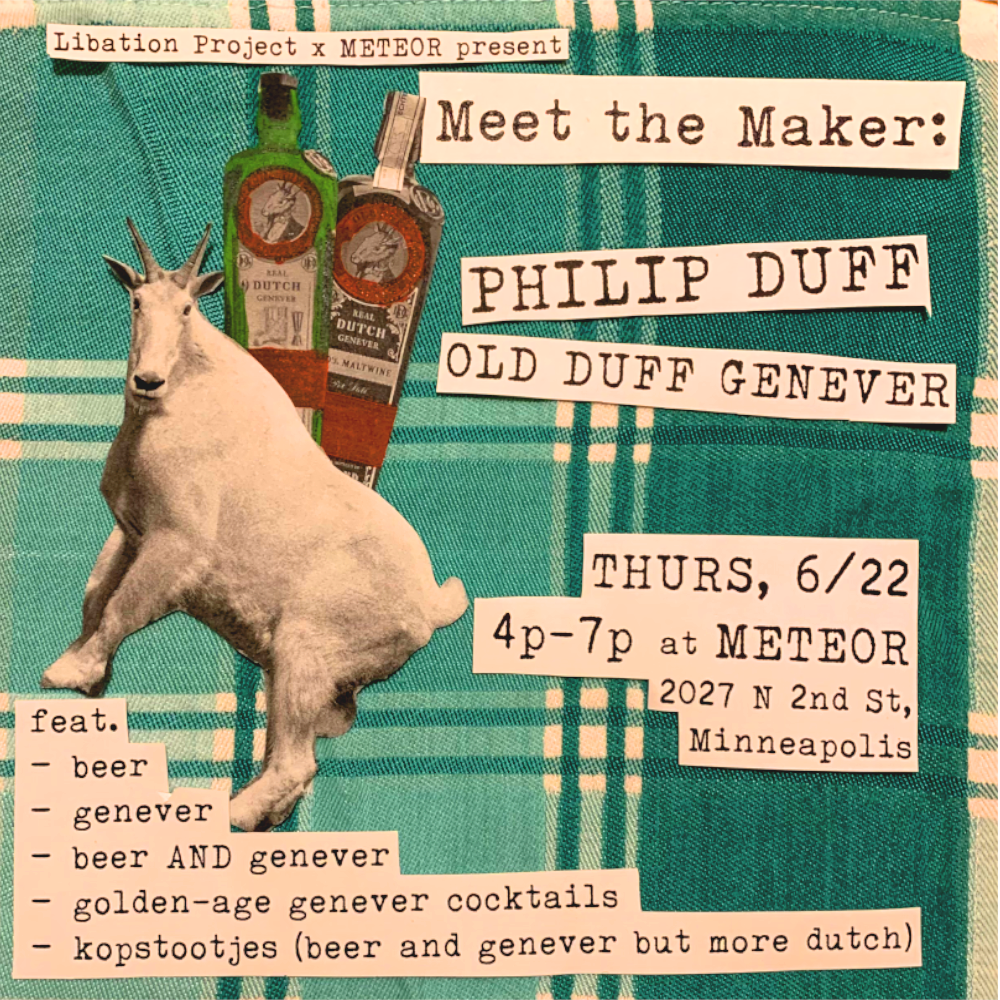 Libation Project x METEOR present
Meet the Maker:
PHILIP DUFF
OLD DUFF GENEVER
REAL
DUTCH
GENEVER
REAL
DUTCH
GENEVER
MALTWINE
THURS, 6/22
4p-7p at METEOR
2027 N 2nd St,
Minneapolis
feat.
- beer
- genever
- beer AND genever
- golden-age genever cocktails
- kopstootjes (beer and genever but more dutch)